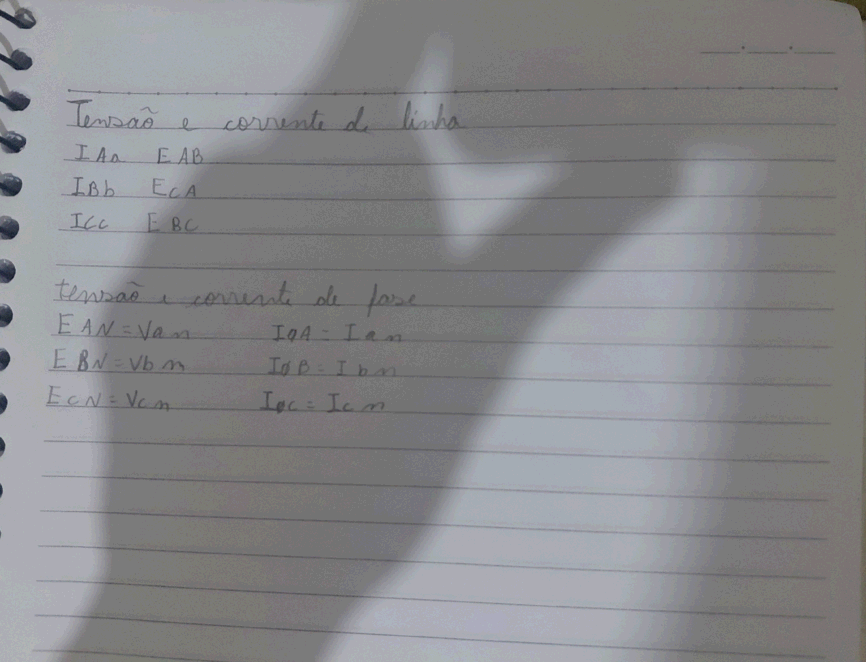 Tensão e corrente de linha
IAa EAB
IBb ECA
ICc EBC
tensão e corrente de fase
EAN = Van IØA = Ian
EBN = Vbn IØB = Ibn
ECN = Vcn IØC = Icn